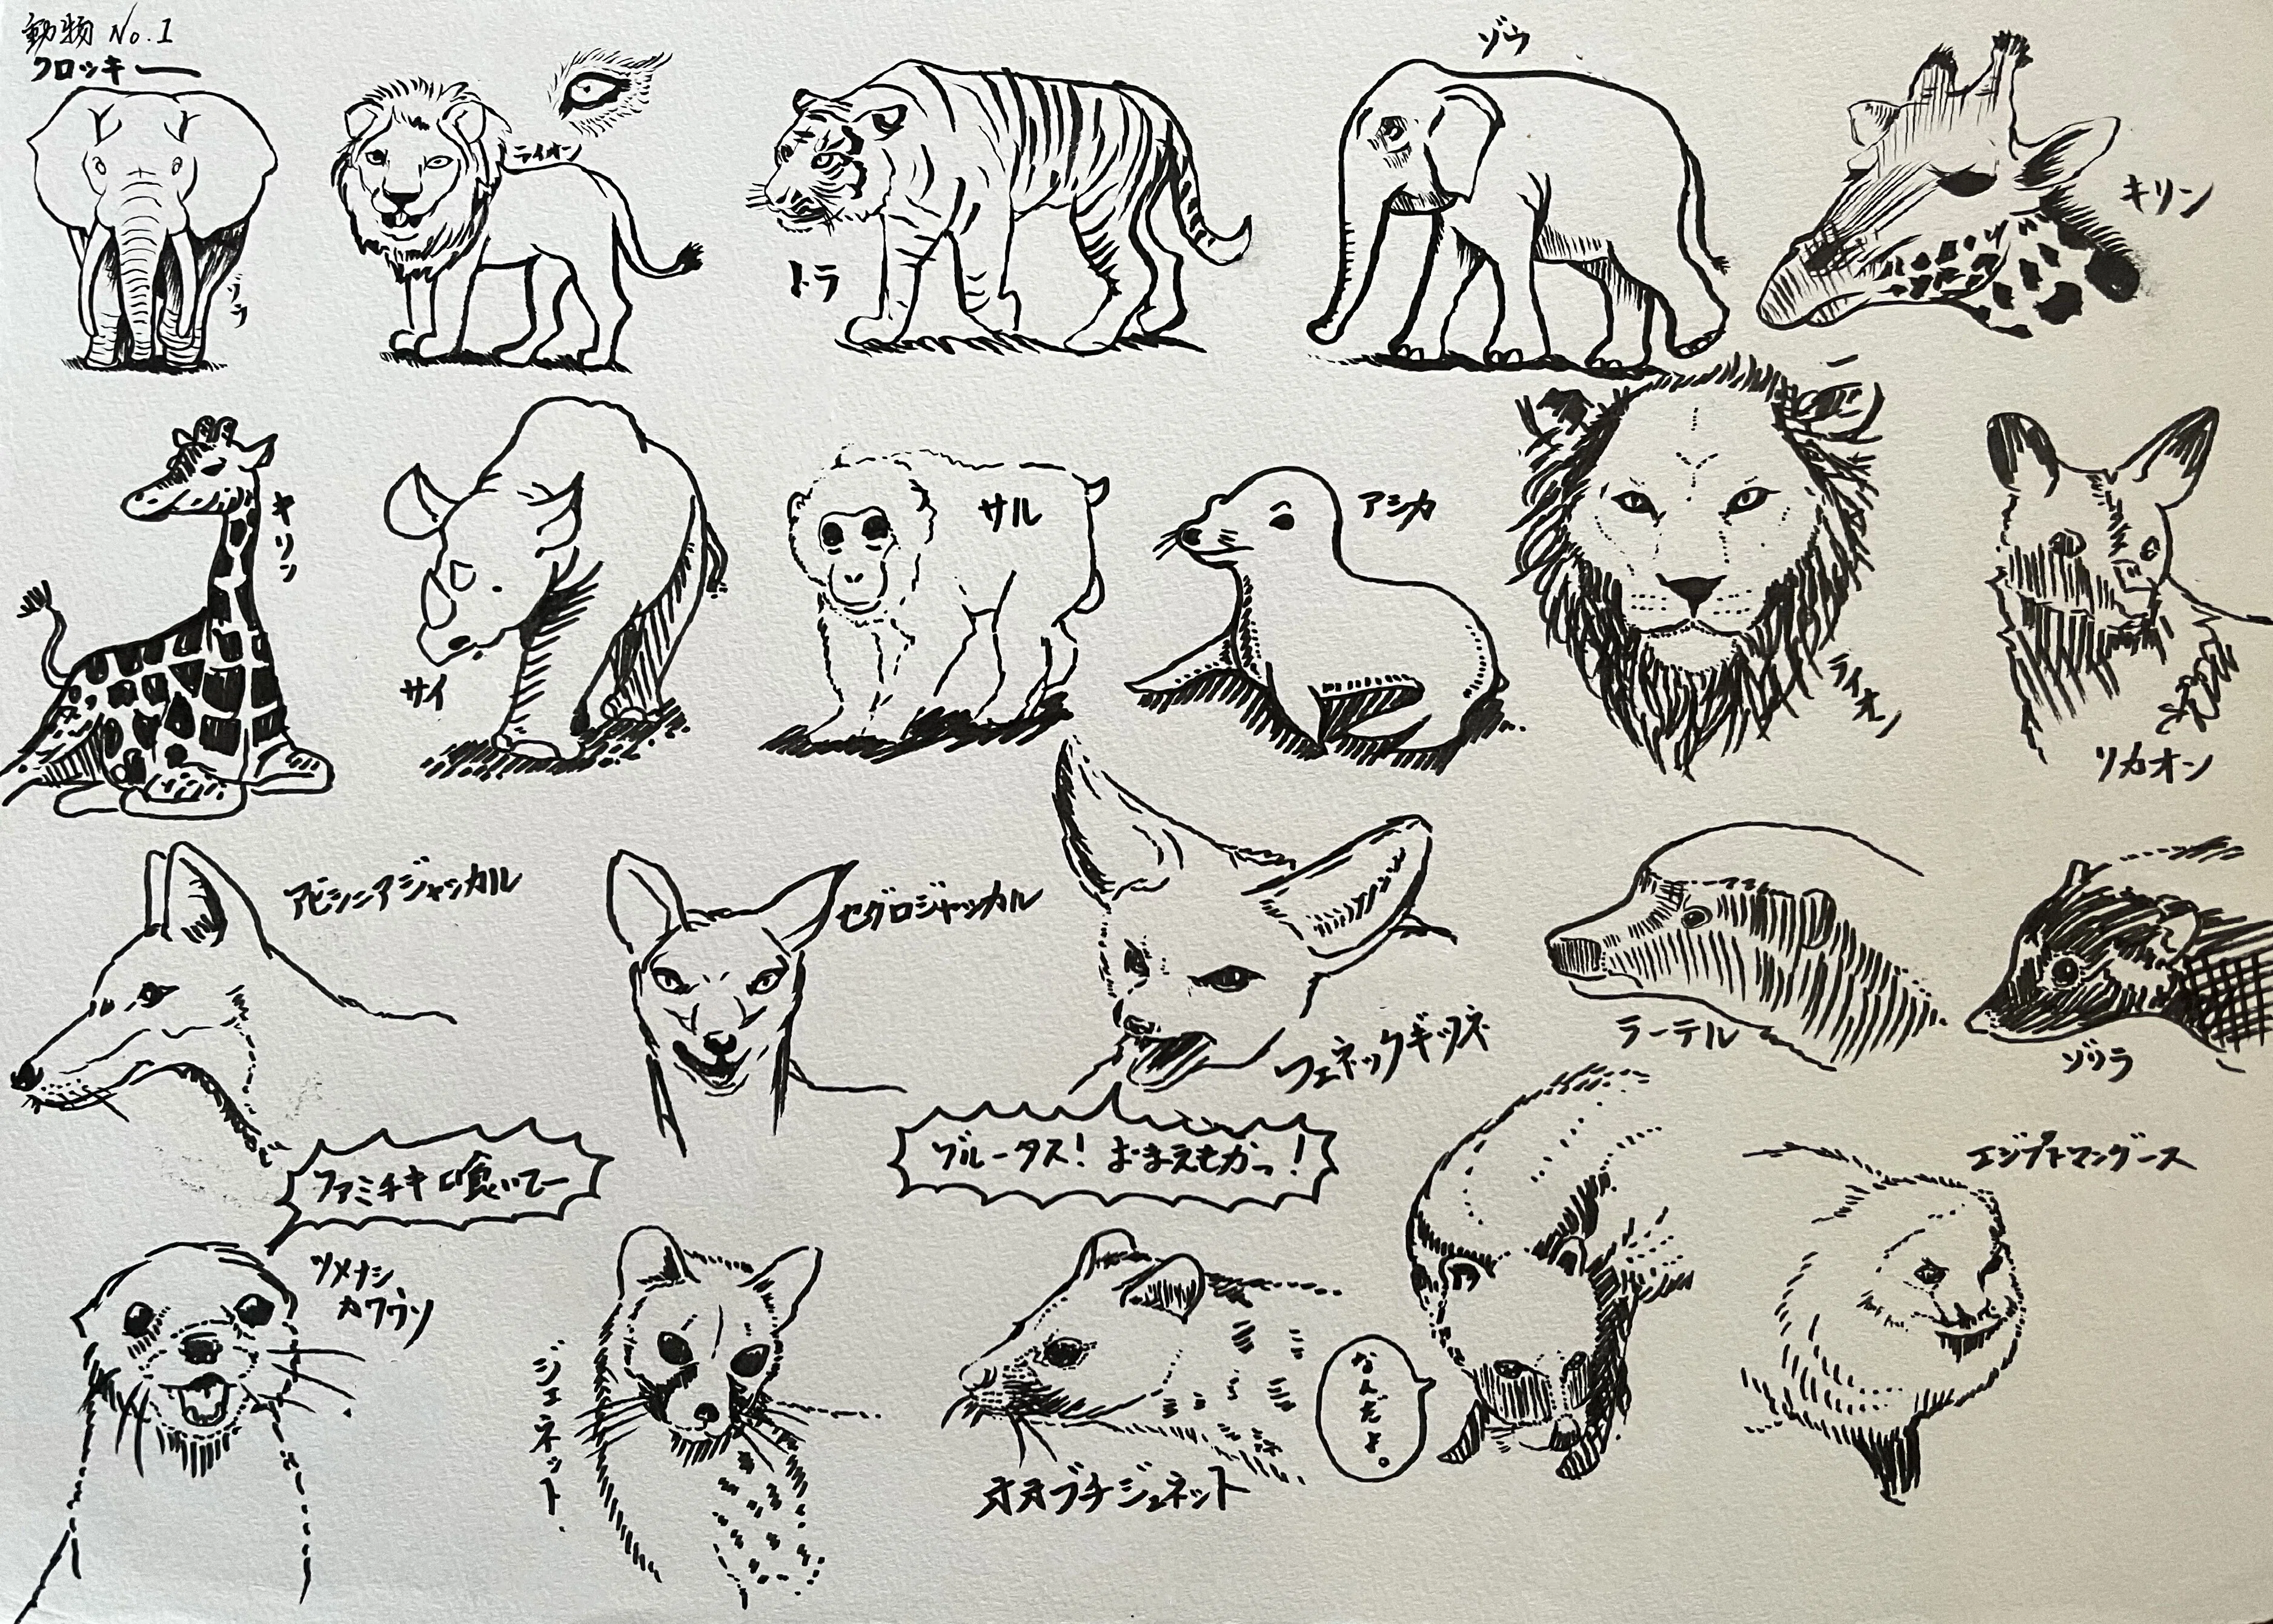 動物 No.1
クロッキー
ゾウ
ライオン
トラ
ゾウ
キリン
キリン
サイ
サル
アシカ
ライオン
リカオン
アビシニアジャッカル
セグロジャッカル
フェネックギツネ
ラーテル
ゾリラ
ファミチキ喰いてー
ブルータス! おまえもかっ!
エジプトマングース
ツメナシ
カワウソ
ジェネット
オオブチジェネット
なんだよ。